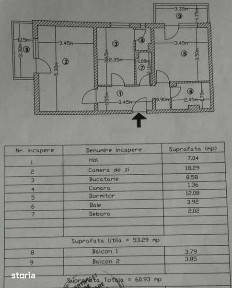 3.35m
3.45m
2.35m
3.45m
Nr. incapere Denumire incapere Suprafata (mp)
1 Hol 7.04
2 Camera de zi 18.29
3 Bucatarie 8.58
4 Camara 1.36
5 Dormitor 12.08
6 Baie 3.92
7 Debara 2.02
Suprafata utila = 53.29 mp
8 Balcon 1 3.79
9 Balcon 2 3.85
Suprafata totala = 60.93 mp
storia